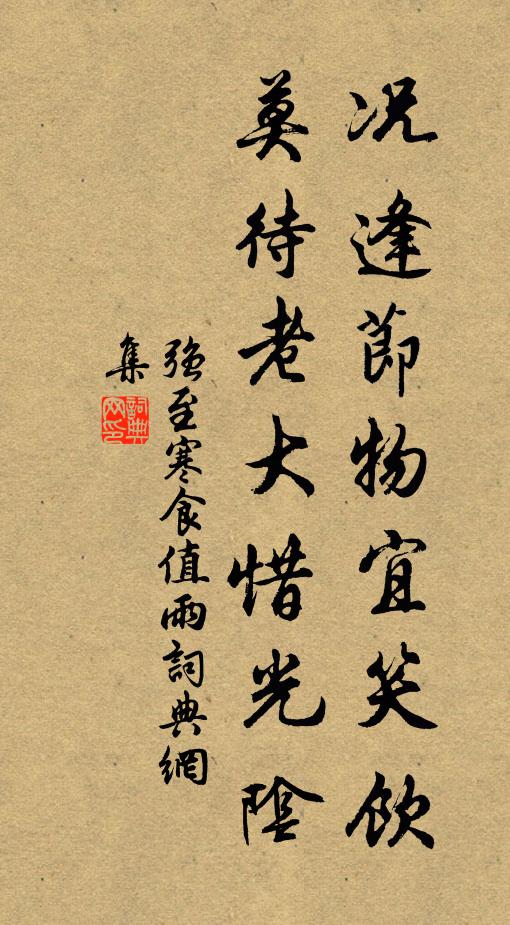 况逢節物宜笑飲
莫待老大惜光陰
強至寒食值雨詞典網
集
詞典
网印